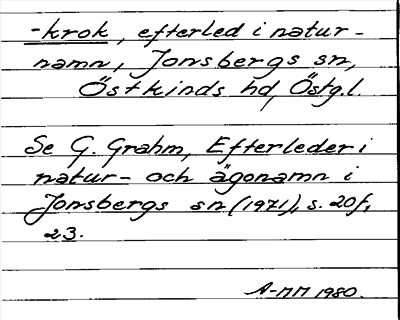 -krok, efterled i natur-
namn, Jonsbergs sn,
Östkinds hd, Östg.l
Se G. Grahm, Efterleder i
natur- och ägonamn i
Jonsbergs sn (1971), s. 20f,
23.
A-MM 1980.